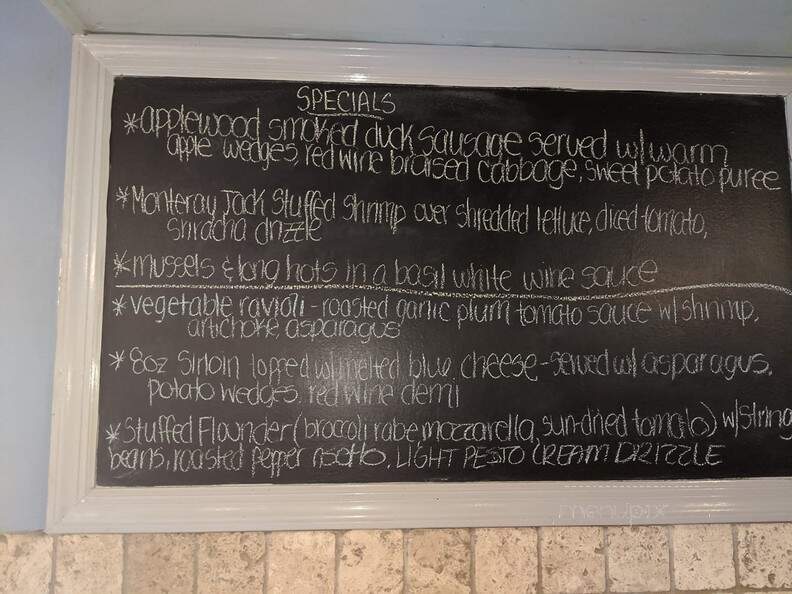 SPECIALS
*applewood smoked duck sausage served w/ warm
apple wedges, red wine braised cabbage, sweet potato puree
*Monteray Jack Stuffed shrimp over shredded lettuce, diced tomato,
sriracha drizzle
*mussels & long hots in a basil white wine sauce
*vegetable ravioli - roasted garlic plum tomato sauce w/ shrimp,
artichoke, asparagus
*8oz Sirloin topped w/ melted blue cheese - served w/ asparagus,
potato wedges, red wine demi
*Stuffed Flounder (broccoli rabe, mozzarella, sun-dried tomato) w/ string
beans, roasted pepper risotto, LIGHT PESTO CREAM DRIZZLE
menupix